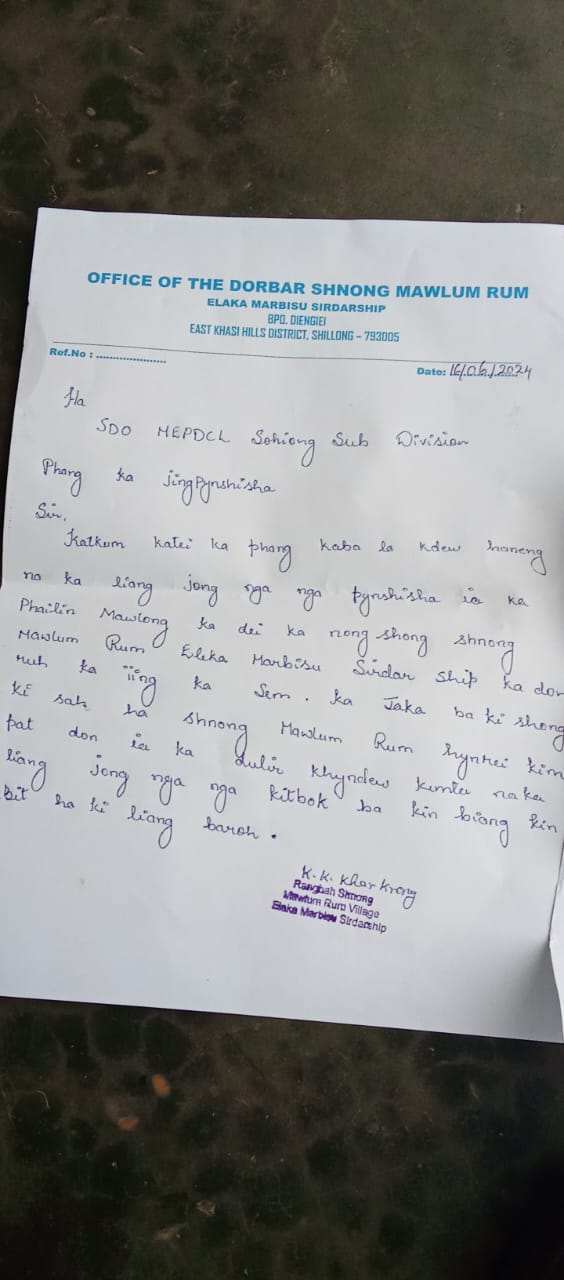 OFFICE OF THE DORBAR SHNONG MAWLUM RUM
ELAKA MARBISU SIRDARSHIP
BPO. DIENGIEI
EAST KHASI HILLS DISTRICT, SHILLONG – 793005
Ref.No : .....................
Date: 16/06/2024
Ha
SDO MEPDCL Sohiong Sub Division
Phang ka jingPynshisha
Sir,
Katkum katei ka phang kaba la kdew haneng
na ka liang jong nga nga pynshisha ia ka
Phailin Mawlong ka dei ka nong shong shnong
Mawlum Rum Elaka Marbisu Sirdar ship ka don
ruh ka ïing ka sem. ka Jaka ba ki shong
ki sah ha shnong Mawlum Rum hynrei kim
pat don ia ka dulir khyndew kumta naka
liang jong nga nga kitbok ba kin biang kin
bit ha ki liang baroh.
K. K. Kharkrang
Rangbah Shnong
Mawlum Rum Village
Elaka Marbisu Sirdarship